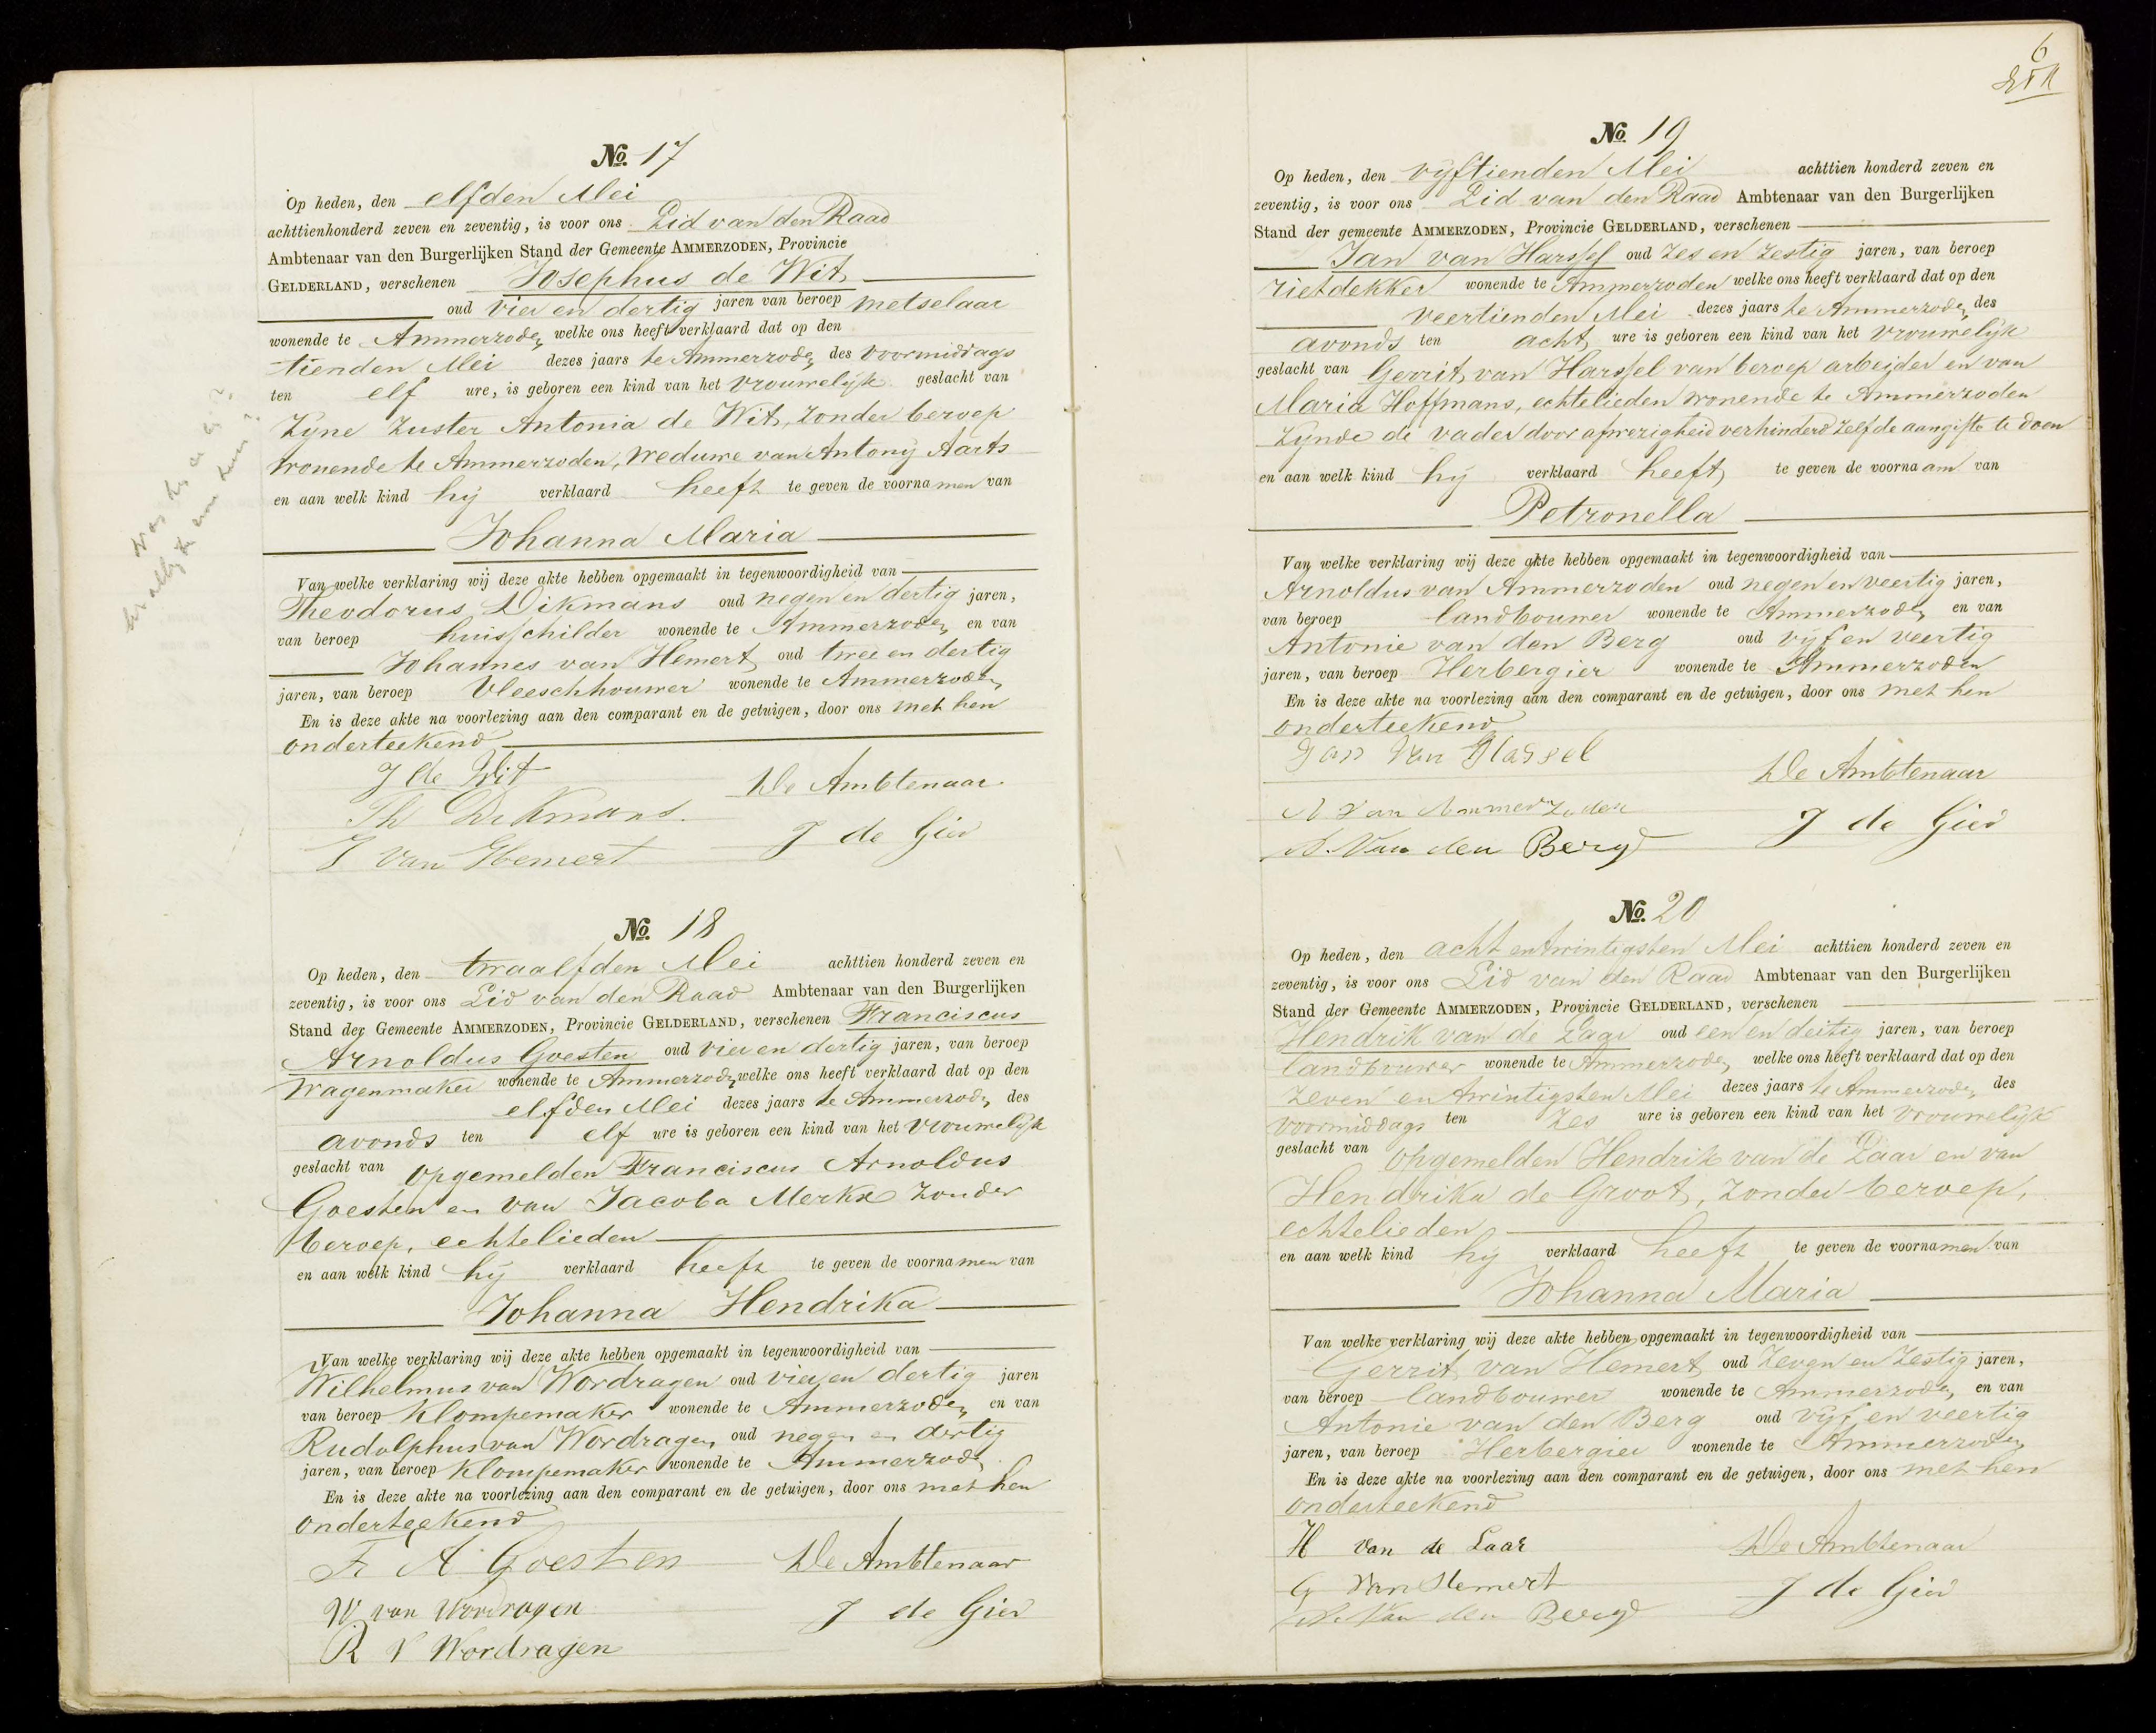 No. 17
Op heden, den elfden Mei
achttienhonderd zeven en zeventig, is voor ons Lid van den Raad
Ambtenaar van den Burgerlijken Stand der Gemeente AMMERZODEN, Provincie
GELDERLAND, verschenen Josephus de Wit
oud vier en dertig jaren van beroep metselaar
wonende te Ammerzoden welke ons heeft verklaard dat op den
tienden Mei dezes jaars te Ammerzoden des voormiddags
ten elf ure, is geboren een kind van het vrouwelijk geslacht van
Zijne zuster Antonia de Wit, zonder beroep
wonende te Ammerzoden, weduwe van Antonij Aarts
en aan welk kind hij verklaard heeft te geven de voornamen van
Johanna Maria
Van welke verklaring wij deze akte hebben opgemaakt in tegenwoordigheid van
Theodorus Dikmans oud negen en dertig jaren,
van beroep huisschilder wonende te Ammerzoden en van
Johannes van Hemert oud twee en dertig
jaren, van beroep Vleeschhouwer wonende te Ammerzoden
En is deze akte na voorlezing aan den comparant en de getuigen, door ons met hen
onderteekend
J de Wit
De Ambtenaar
Th Dikmans.
J van Hemert
J de Gier
No. 18
Op heden, den twaalfden Mei achttien honderd zeven en
zeventig, is voor ons Lid van den Raad Ambtenaar van den Burgerlijken
Stand der Gemeente AMMERZODEN, Provincie GELDERLAND, verschenen Franciscus
Arnoldus Goesten oud vier en dertig jaren, van beroep
Wagenmaker wonende te Ammerzoden welke ons heeft verklaard dat op den
elfden Mei dezes jaars te Ammerzoden des
avonds ten elf ure is geboren een kind van het vrouwelijk
geslacht van opgemelden Franciscus Arnoldus
Goesten en van Jacoba Merkx zonder
beroep, echtelieden
en aan welk kind hij verklaard heeft te geven de voornamen van
Johanna Hendrika
Van welke verklaring wij deze akte hebben opgemaakt in tegenwoordigheid van
Wilhelmus van Wordragen oud vier en dertig jaren
van beroep Klompemaker wonende te Ammerzoden en van
Rudolphus van Wordragen oud negen en dertig
jaren, van beroep Klompemaker wonende te Ammerzoden
En is deze akte na voorlezing aan den comparant en de getuigen, door ons met hen
onderteekend
F A Goesten
De Ambtenaar
W van Wordragen
J de Gier
R V Wordragen
6
No. 19
Op heden, den vijftienden Mei achttien honderd zeven en
zeventig, is voor ons Lid van den Raad Ambtenaar van den Burgerlijken
Stand der gemeente AMMERZODEN, Provincie GELDERLAND, verschenen
Jan van Harssel oud zes en zestig jaren, van beroep
rietdekker wonende te Ammerzoden welke ons heeft verklaard dat op den
veertienden Mei dezes jaars te Ammerzoden des
avonds ten acht ure is geboren een kind van het vrouwelijk
geslacht van Gerrit van Harssel van beroep arbeider en van
Maria Hoffmans, echtelieden wonende te Ammerzoden
Zijnde de vader door afwezigheid verhinderd zelf de aangifte te doen
en aan welk kind hij verklaard heeft te geven de voornaam van
Petronella
Van welke verklaring wij deze akte hebben opgemaakt in tegenwoordigheid van
Arnoldus van Ammerzoden oud negen en veertig jaren,
van beroep landbouwer wonende te Ammerzoden en van
Antonie van den Berg oud vijf en veertig
jaren, van beroep Herbergier wonende te Ammerzoden
En is deze akte na voorlezing aan den comparant en de getuigen, door ons met hen
onderteekend
Jan van Hassel
De Ambtenaar
A van Ammerzoden
J de Gier
A. van den Berg
No. 20
Op heden, den acht en twintigsten Mei achttien honderd zeven en
zeventig, is voor ons Lid van den Raad Ambtenaar van den Burgerlijken
Stand der Gemeente AMMERZODEN, Provincie GELDERLAND, verschenen
Hendrik van de Laar oud een en dertig jaren, van beroep
landbouwer wonende te Ammerzoden welke ons heeft verklaard dat op den
zeven en twintigsten Mei dezes jaars te Ammerzoden des
voormiddags ten zes ure is geboren een kind van het vrouwelijk
geslacht van opgemelden Hendrik van de Laar en van
Hendrika de Groot, zonder beroep,
echtelieden
en aan welk kind hij verklaard heeft te geven de voornamen van
Johanna Maria
Van welke verklaring wij deze akte hebben opgemaakt in tegenwoordigheid van
Gerrit van Hemert oud zeven en zestig jaren,
van beroep landbouwer wonende te Ammerzoden en van
Antonie van den Berg oud vijf en veertig
jaren, van beroep Herbergier wonende te Ammerzoden
En is deze akte na voorlezing aan den comparant en de getuigen, door ons met hen
onderteekend
H van de Laar
De Ambtenaar
G van Hemert
J de Gier
A. van den Berg